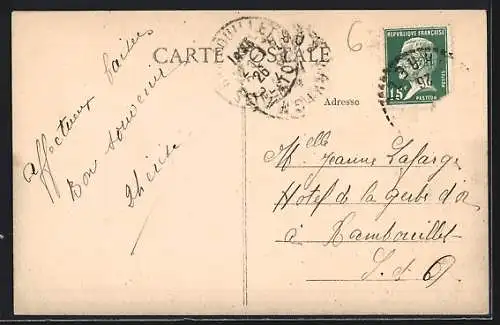 CARTE POSTALE
Adresse
RÉPUBLIQUE FRANÇAISE
15c
POSTES
PASTEUR
6
affectueux baisers
Bon souvenir
Thérèse
Melle Jeanne Lafarge
Hotel de la gerbe d'or
à Rambouillet
S. et O.